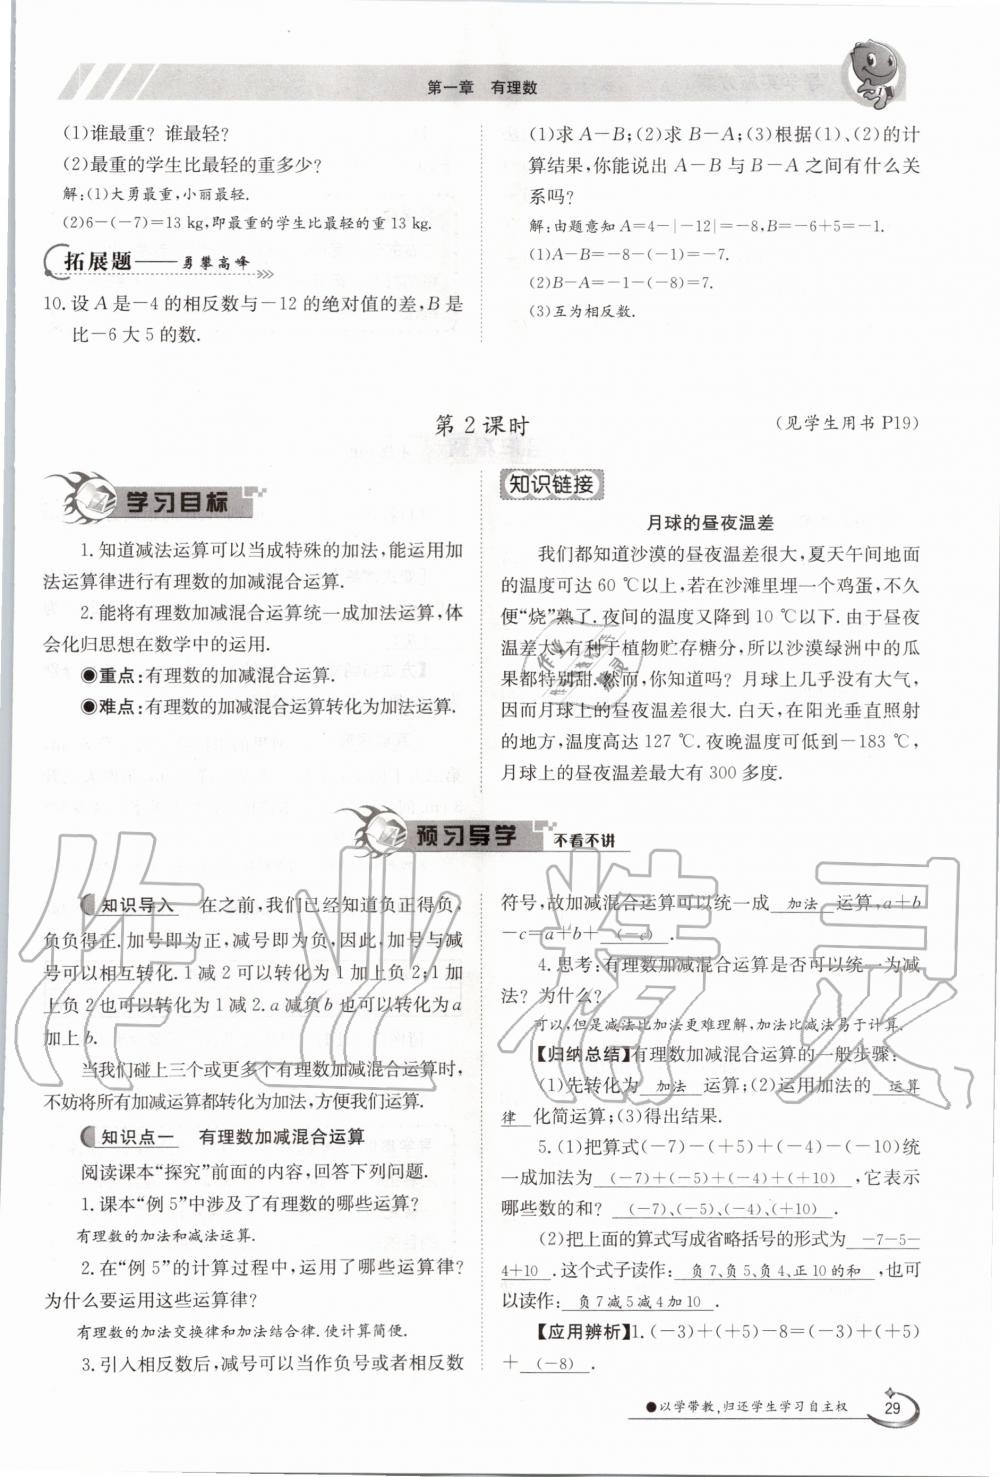 第一章 有理数
(1)谁最重? 谁最轻?
(2)最重的学生比最轻的重多少?
解:(1)大勇最重,小丽最轻.
(2)6-(-7)=13 kg,即最重的学生比最轻的重 13 kg.
拓展题——勇攀高峰
10. 设 A 是-4 的相反数与-12 的绝对值的差,B 是
比-6 大 5 的数.
(1)求 A-B;(2)求 B-A;(3)根据(1)、(2)的计
算结果,你能说出 A-B 与 B-A 之间有什么关
系吗?
解:由题意知 A=4-|-12|=-8,B=-6+5=-1.
(1)A-B=-8-(-1)=-7.
(2)B-A=-1-(-8)=7.
(3)互为相反数.
第 2 课时
(见学生用书 P19)
学习目标
1. 知道减法运算可以当成特殊的加法,能运用加
法运算律进行有理数的加减混合运算.
2. 能将有理数加减混合运算统一成加法运算,体
会化归思想在数学中的运用.
●重点:有理数的加减混合运算.
●难点:有理数的加减混合运算转化为加法运算.
知识链接
月球的昼夜温差
我们都知道沙漠的昼夜温差很大,夏天午间地面
的温度可达 60 ℃以上,若在沙滩里埋一个鸡蛋,不久
便“烧”熟了. 夜间的温度又降到 10 ℃以下. 由于昼夜
温差大,有利于植物贮存糖分,所以沙漠绿洲中的瓜
果都特别甜. 然而,你知道吗? 月球上几乎没有大气,
因而月球上的昼夜温差很大. 白天,在阳光垂直照射
的地方,温度高达 127 ℃. 夜晚温度可低到-183 ℃,
月球上的昼夜温差最大有 300 多度.
预习导学 不看不讲
知识导入 在之前,我们已经知道负正得负,
负负得正. 加号即为正,减号即为负,因此,加号与减
号可以相互转化. 1 减 2 可以转化为 1 加上负 2;1 加
上负 2 也可以转化为 1 减 2. a 减负 b 也可以转化为 a
加上 b.
当我们碰上三个或更多个有理数加减混合运算时,
不妨将所有加减运算都转化为加法,方便我们运算.
知识点一 有理数加减混合运算
阅读课本“探究”前面的内容,回答下列问题.
1. 课本“例 5”中涉及了有理数的哪些运算?
有理数的加法和减法运算.
2. 在“例 5”的计算过程中,运用了哪些运算律?
为什么要运用这些运算律?
有理数的加法交换律和加法结合律. 使计算简便.
3. 引入相反数后,减号可以当作负号或者相反数
符号,故加减混合运算可以统一成 加法 运算,a+b
-c=a+b+ (-c) .
4. 思考:有理数加减混合运算是否可以统一为减
法? 为什么?
可以,但是减法比加法更难理解,加法比减法易于计算.
【归纳总结】有理数加减混合运算的一般步骤:
(1)先转化为 加法 运算;(2)运用加法的 运算
律 化简运算;(3)得出结果.
5. (1)把算式(-7)-(+5)+(-4)-(-10)统
一成加法为 (-7)+(-5)+(-4)+(+10) ,它表示
哪些数的和? (-7)、(-5)、(-4)、(+10) .
(2)把上面的算式写成省略括号的形式为 -7-5-
4+10 . 这个式子读作: 负 7、负 5、负 4、正 10 的和 ,也可
以读作: 负 7 减 5 减 4 加 10 .
【应用辨析】1. (-3)+(+5)-8=(-3)+(+5)
+ (-8) .
●以学带教,归还学生学习自主权
29
作业精灵